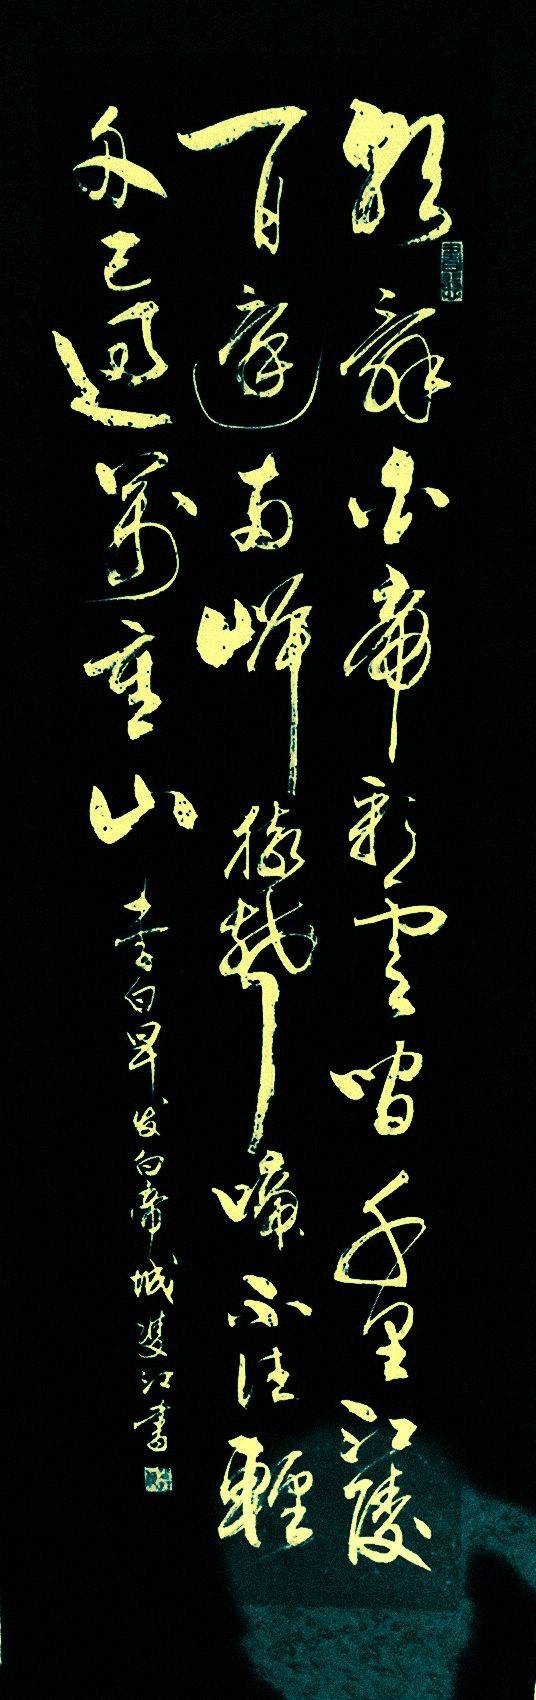 朝辞白帝彩雲間千里江陵
一日還两岸猿聲啼不住輕
舟已過萬重山 李白早发白帝城 雙江書